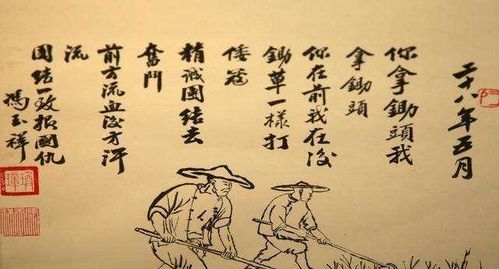 二十八年五月
你拿鋤頭我
拿鋤頭
你在前我在後
鋤草一樣打
倭寇
精誠團結去
奮鬥
前方流血後方汗
流
團結一致報國仇
馮玉祥